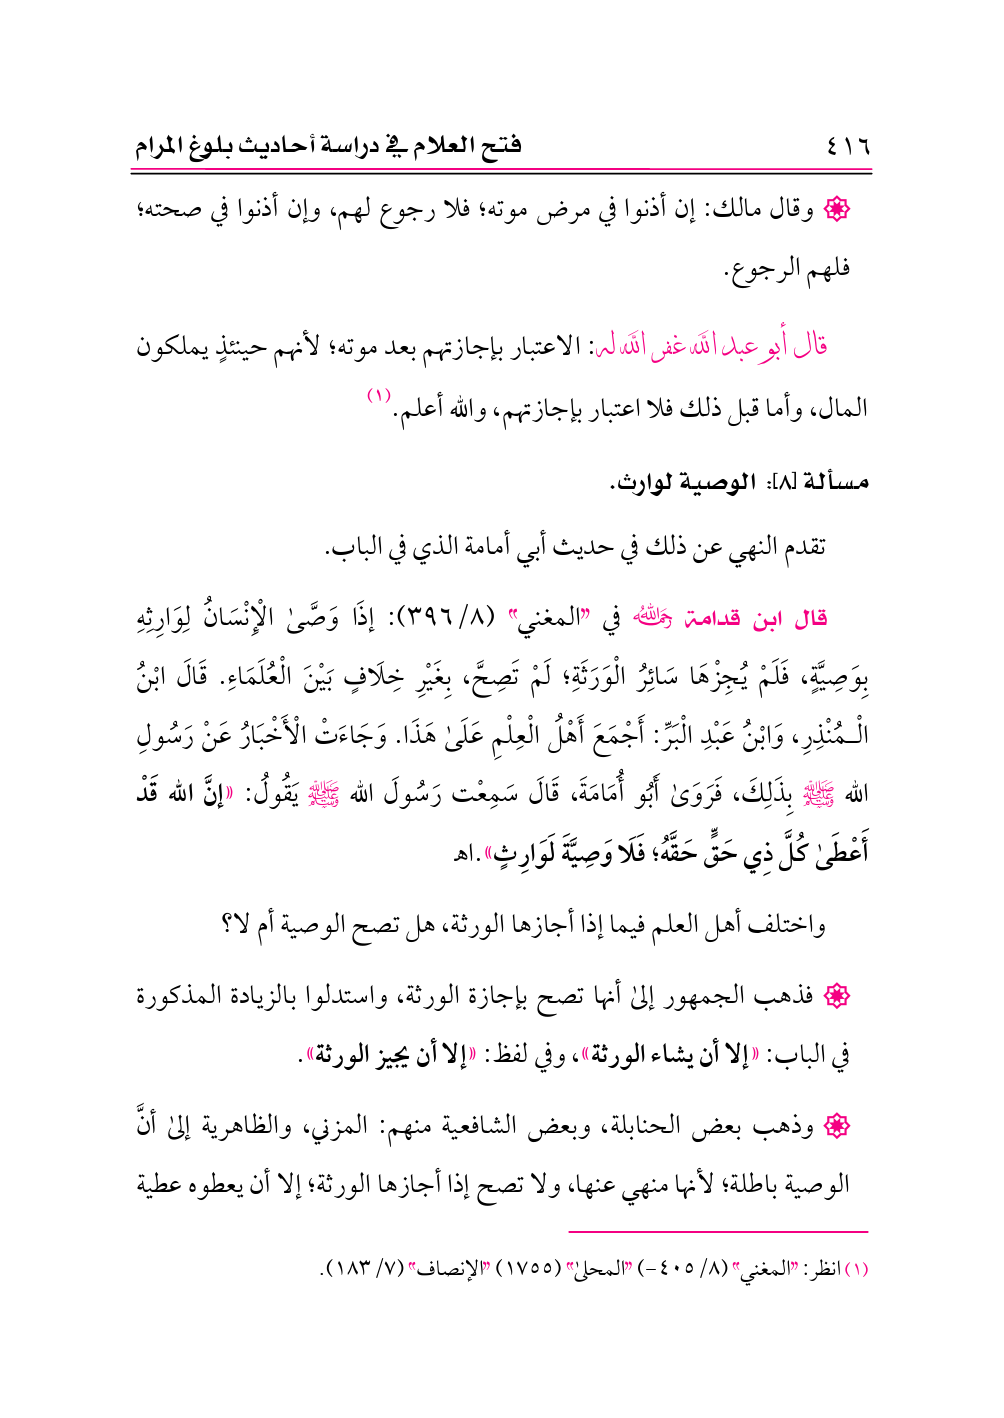 ٤١٦ فتح العلام في دراسة أحاديث بلوغ المرام
وقال مالك: إن أذنوا في مرض موته؛ فلا رجوع لهم، وإن أذنوا في صحته؛
فلهم الرجوع.
قال أبو عبد الله غفر الله له: الاعتبار بإجازتهم بعد موته؛ لأنهم حينئذٍ يملكون
المال، وأما قبل ذلك فلا اعتبار بإجازتهم، والله أعلم.(١)
مسألة [٨]: الوصية لوارث.
تقدم النهي عن ذلك في حديث أبي أمامة الذي في الباب.
قال ابن قدامة رحمه الله في "المغني" (٨/ ٣٩٦): إذَا وَصَّىٰ الْإِنْسَانُ لِوَارِثِهِ
بِوَصِيَّةٍ، فَلَمْ يُجِزْهَا سَائِرُ الْوَرَثَةِ؛ لَمْ تَصِحَّ، بِغَيْرِ خِلَافٍ بَيْنَ الْعُلَمَاءِ. قَالَ ابْنُ
الْـمُنْذِرِ، وَابْنُ عَبْدِ الْبَرِّ: أَجْمَعَ أَهْلُ الْعِلْمِ عَلَىٰ هَذَا. وَجَاءَتْ الْأَخْبَارُ عَنْ رَسُولِ
الله ﷺ بِذَلِكَ، فَرَوَىٰ أَبُو أُمَامَةَ، قَالَ سَمِعْت رَسُولَ الله ﷺ يَقُولُ: «إنَّ الله قَدْ
أَعْطَىٰ كُلَّ ذِي حَقٍّ حَقَّهُ؛ فَلَا وَصِيَّةَ لَوَارِثٍ».اهـ
واختلف أهل العلم فيما إذا أجازها الورثة، هل تصح الوصية أم لا؟
فذهب الجمهور إلىٰ أنها تصح بإجازة الورثة، واستدلوا بالزيادة المذكورة
في الباب: «إلا أن يشاء الورثة»، وفي لفظ: «إلا أن يجيز الورثة».
وذهب بعض الحنابلة، وبعض الشافعية منهم: المزني، والظاهرية إلىٰ أنَّ
الوصية باطلة؛ لأنها منهي عنها، ولا تصح إذا أجازها الورثة؛ إلا أن يعطوه عطية
(١) انظر: "المغني" (٨/ ٤٠٥-) "المحلىٰ" (١٧٥٥) "الإنصاف" (٧/ ١٨٣).